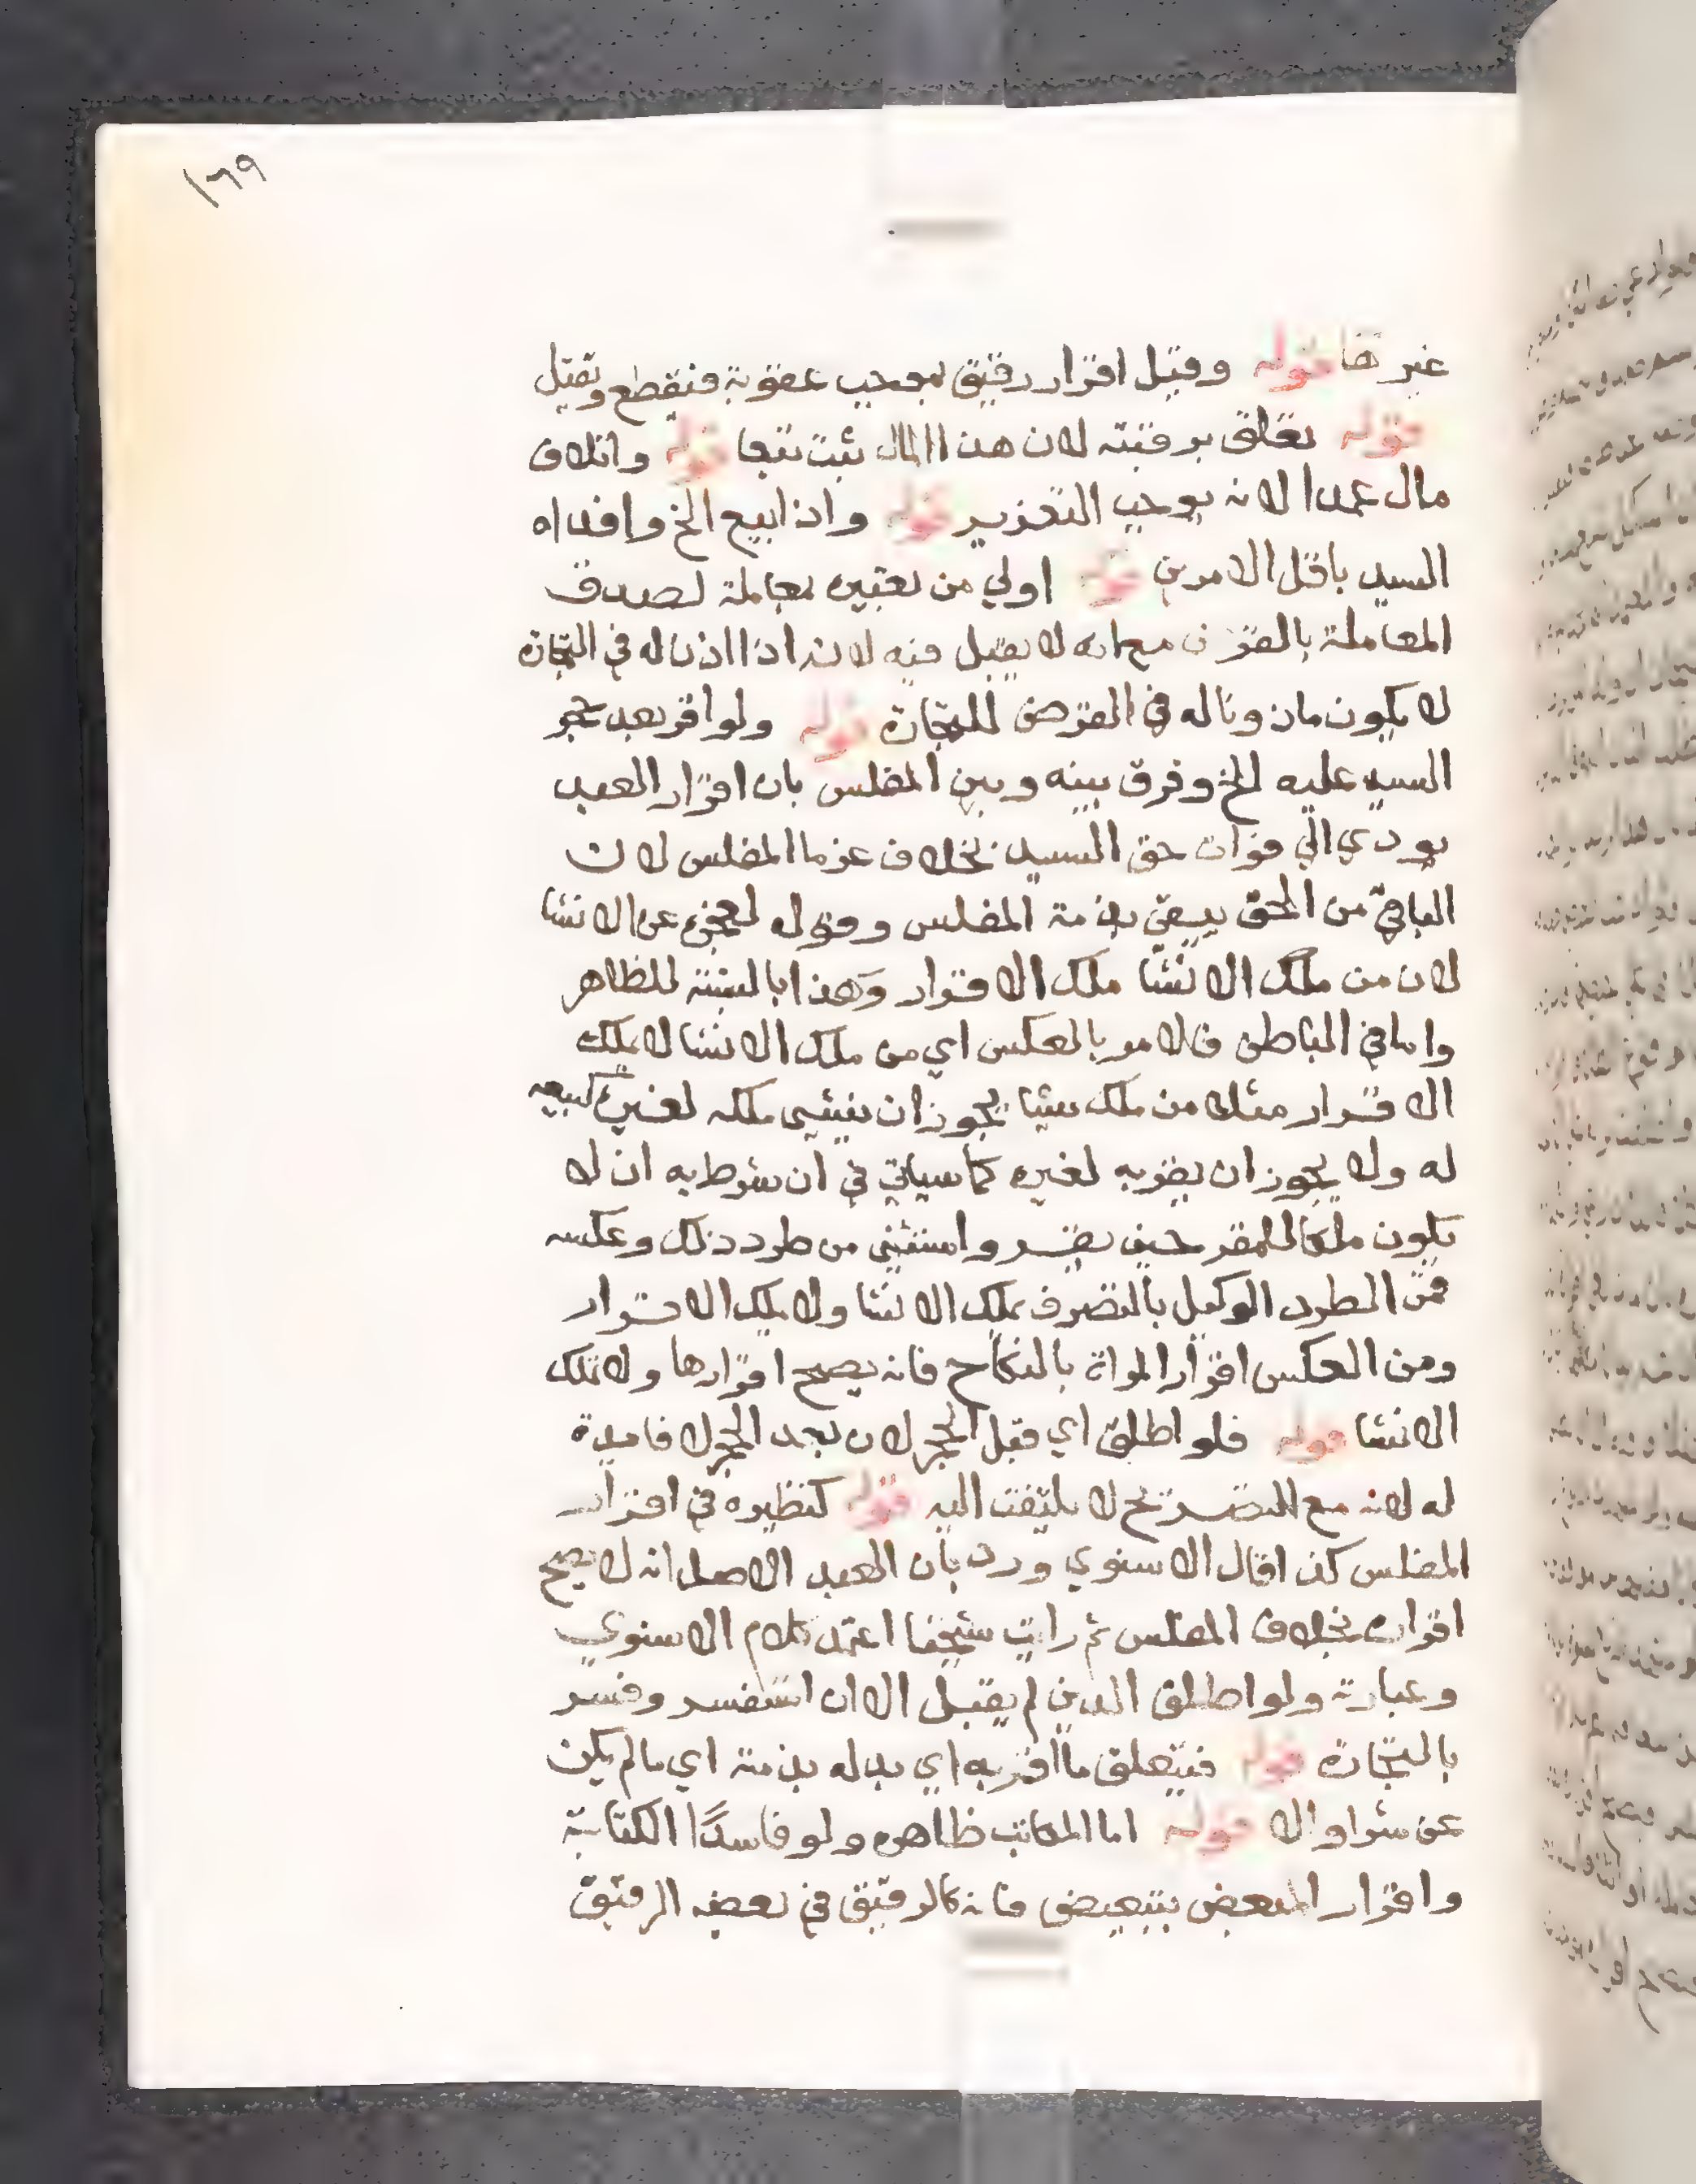 ١٦٩
غيرها قوله وقبل اقرار رقيق بموجب عقوبة فيقطع ويقتل
قوله تعلق برقبته لان هذا المال ثبت تبعا قوله واتلاف
مال عمدا لانه يوجب التعزير قوله واذا بيع الخ وافداه
السيد باقل الامرين قوله اولي من تعبيره بمعاملة لصدق
المعاملة بالقرض مع انه لا يقبل فيه لانه اذا اذن له في التجارة
لا يكون ماذونا له في القرض للتجارة قوله ولو اقر بعد حجر
السيد عليه الخ وفرق بينه وبين المفلس بان اقرار العبد
يودي الي فوات حق السيد بخلاف غرما المفلس لان
الباقي من الحق يبقي بذمة المفلس وقوله لعجزه عن الانشا
لان من ملك الانشا ملك الاقرار وهذا بالنسبة للظاهر
واما في الباطن فالامر بالعكس اي من ملك الانشا لا يملك
الاقرار مثلا من ملك شيا يجوز ان ينشي ملكه لغيره كبيعه
له ولا يجوز ان يقر به لغيره كما سياتي في ان شرط به ان لا
يكون ملكا للمقر حين يقر واستثني من طرد ذلك وعكسه
فمن الطرد الوكيل بالتصرف يملك الانشا ولا يملك الاقرار
ومن العكس اقرار المراة بالنكاح فانه يصح اقرارها ولا تملك
الانشا قوله فلو اطلق اي قبل الحجر لان بعد الحجر لا فايدة
له لانه مع التصريح لا يلتفت اليه قوله كنظيره في اقرار
المفلس كذا قال الاسنوي ورد بان العبد الاصل انه لا يصح
اقراره بخلاف المفلس ثم رايت شيخنا اعتمد كلام الاسنوي
وعبارته ولو اطلق الدين لم يقبل الا ان استفسر وفسر
بالتجارة قوله فيتعلق ما اقر به اي بدله بذمته اي ما لم يكن
عن شرا والا قوله اما المكاتب ظاهره ولو فاسدًا الكتابة
واقرار المبعض بتبعيض فانه كالرقيق في بعضه الرقيق